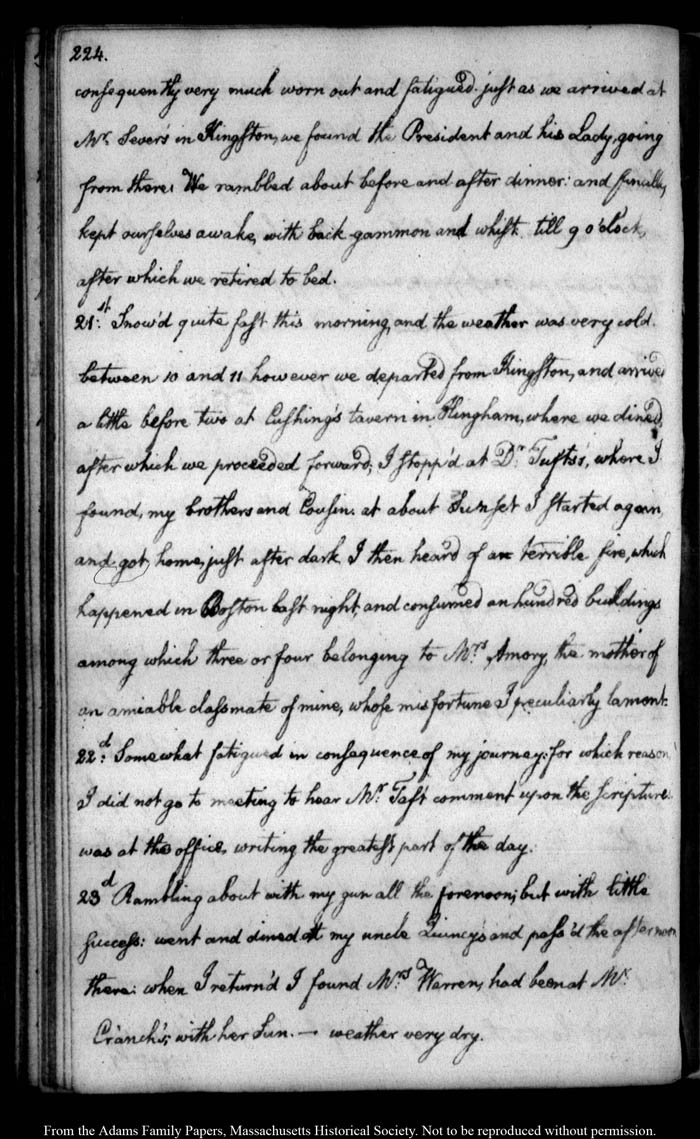 224.
consequently very much worn out and fatigued. just as we arrived at
Mr. Sever's in Kingston, we found the President and his Lady, going
from there. We rambled about before and after dinner: and finally,
kept ourselves awake, with back-gammon and whist till 9 o'clock,
after which we retired to bed.
21st. Snow'd quite fast this morning, and the weather was very cold.
between 10 and 11 however we departed from Kingston, and arrived
a little before two at Cushing's tavern in Hingham, where we dined,
after which we proceeded forward; I stopp'd at Dr. Tufts's, where I
found, my brothers and Cousin. at about Sunset I started again,
and got home, just after dark. I then heard of a terrible fire, which
happened in Boston last night, and consumed an hundred buildings
among which three or four belonging to Mrs. Amory, the mother of
an amiable classmate of mine, whose misfortune I peculiarly lament.
22d. Somewhat fatigued in consequence of my journey: for which reason
I did not go to meeting to hear Mr. Taft comment upon the scripture.
was at the office, writing the greatest part of the day.
23d Rambling about with my gun all the forenoon; but with little
success: went and dined at my uncle Quincy's and pass'd the afternoon
there: when I return'd I found Mrs. Warren, had been at Mr.
Cranch's, with her Sun. — weather very dry.
From the Adams Family Papers, Massachusetts Historical Society. Not to be reproduced without permission.